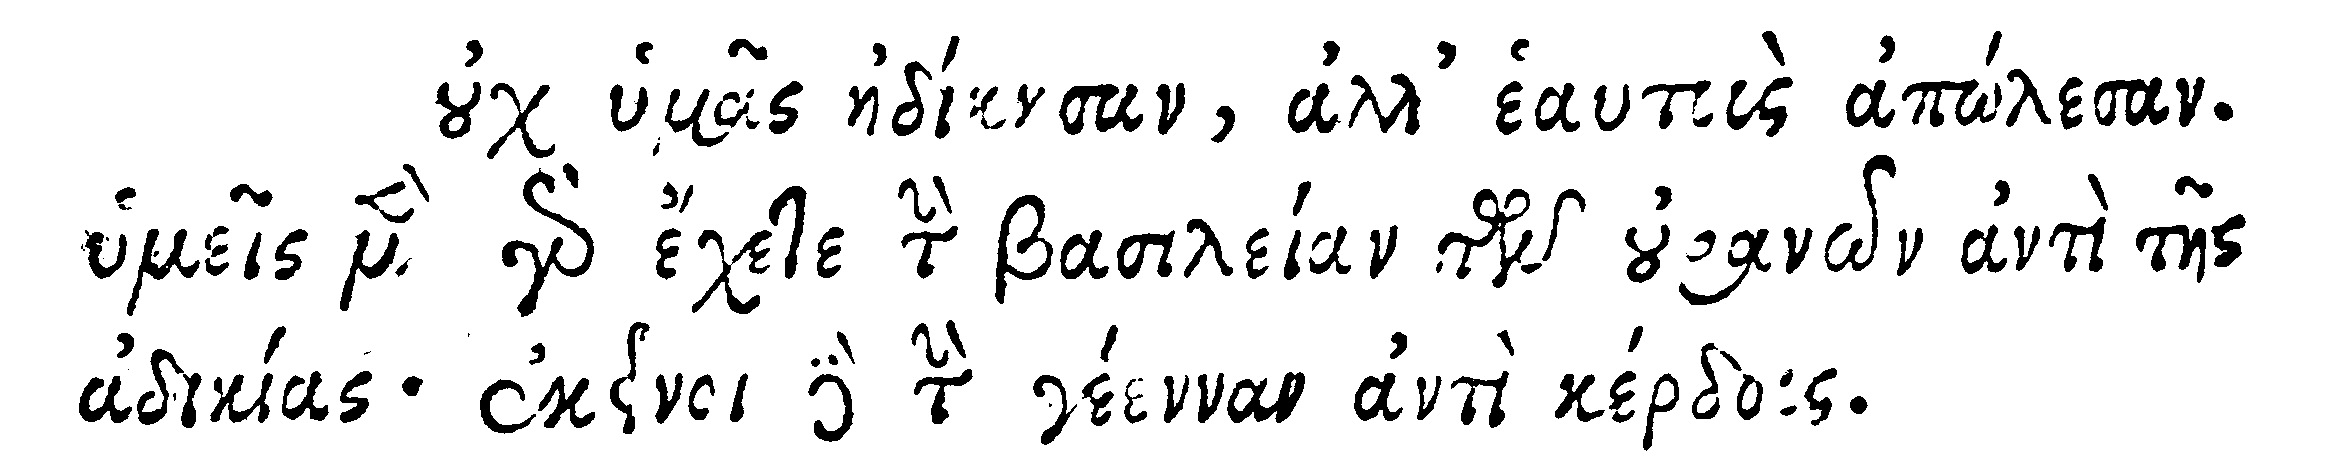 οὐχ ὑμᾶς ἠδίκησαν, ἀλλ’ ἑαυτοὺς ἀπώλεσαν.
ὑμεῖς μὲν γὰρ ἔχετε τὴν βασιλείαν τῶν οὐρανῶν ἀντὶ τῆς
ἀδικίας· ἐκεῖνοι δὲ τὴν γέενναν ἀντὶ κέρδους.